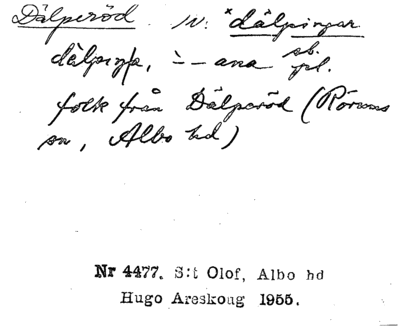 Dälperöd N: *dälpingar
sb.
pl.
folk från Dälperöd (Rörums
sn, Albo hd)
Nr 4477. S:t Olof, Albo hd
Hugo Areskoug 1955.